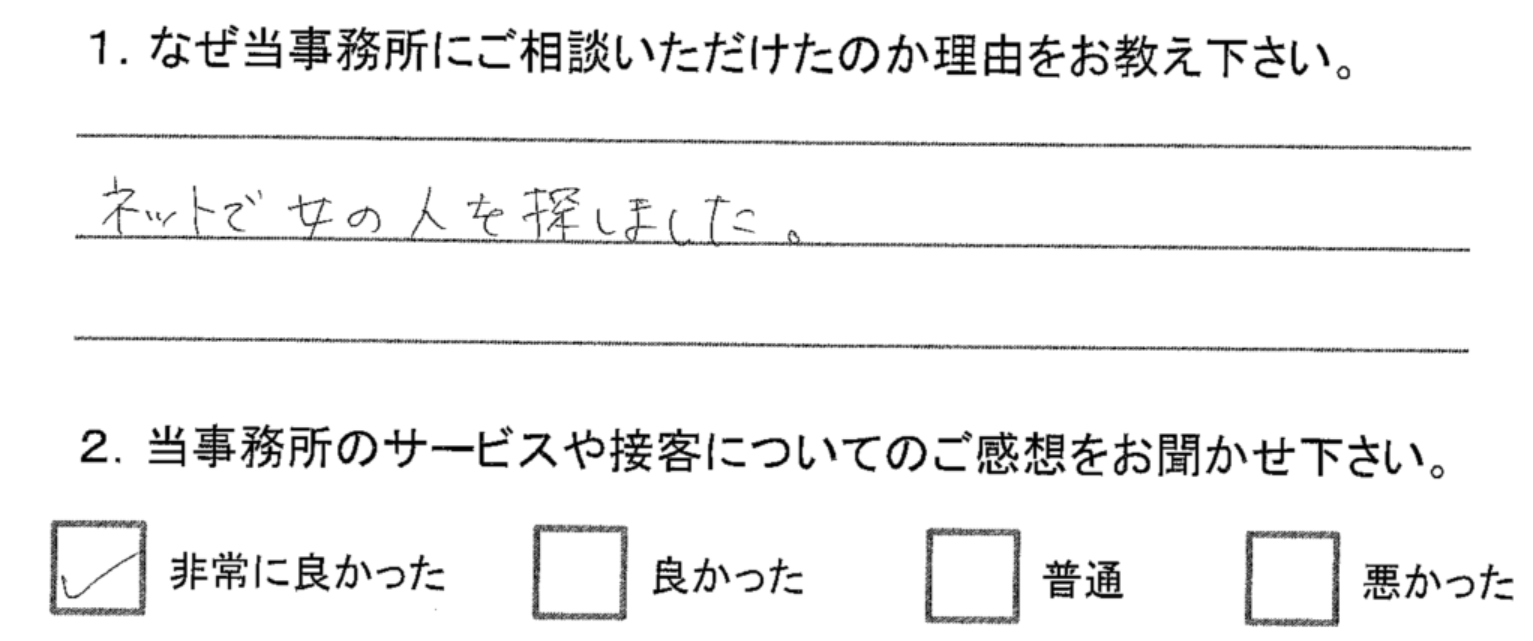 1. なぜ当事務所にご相談いただけたのか理由をお教え下さい。
ネットで女の人を探しました。
2. 当事務所のサービスや接客についてのご感想をお聞かせ下さい。
非常に良かった 良かった 普通 悪かった